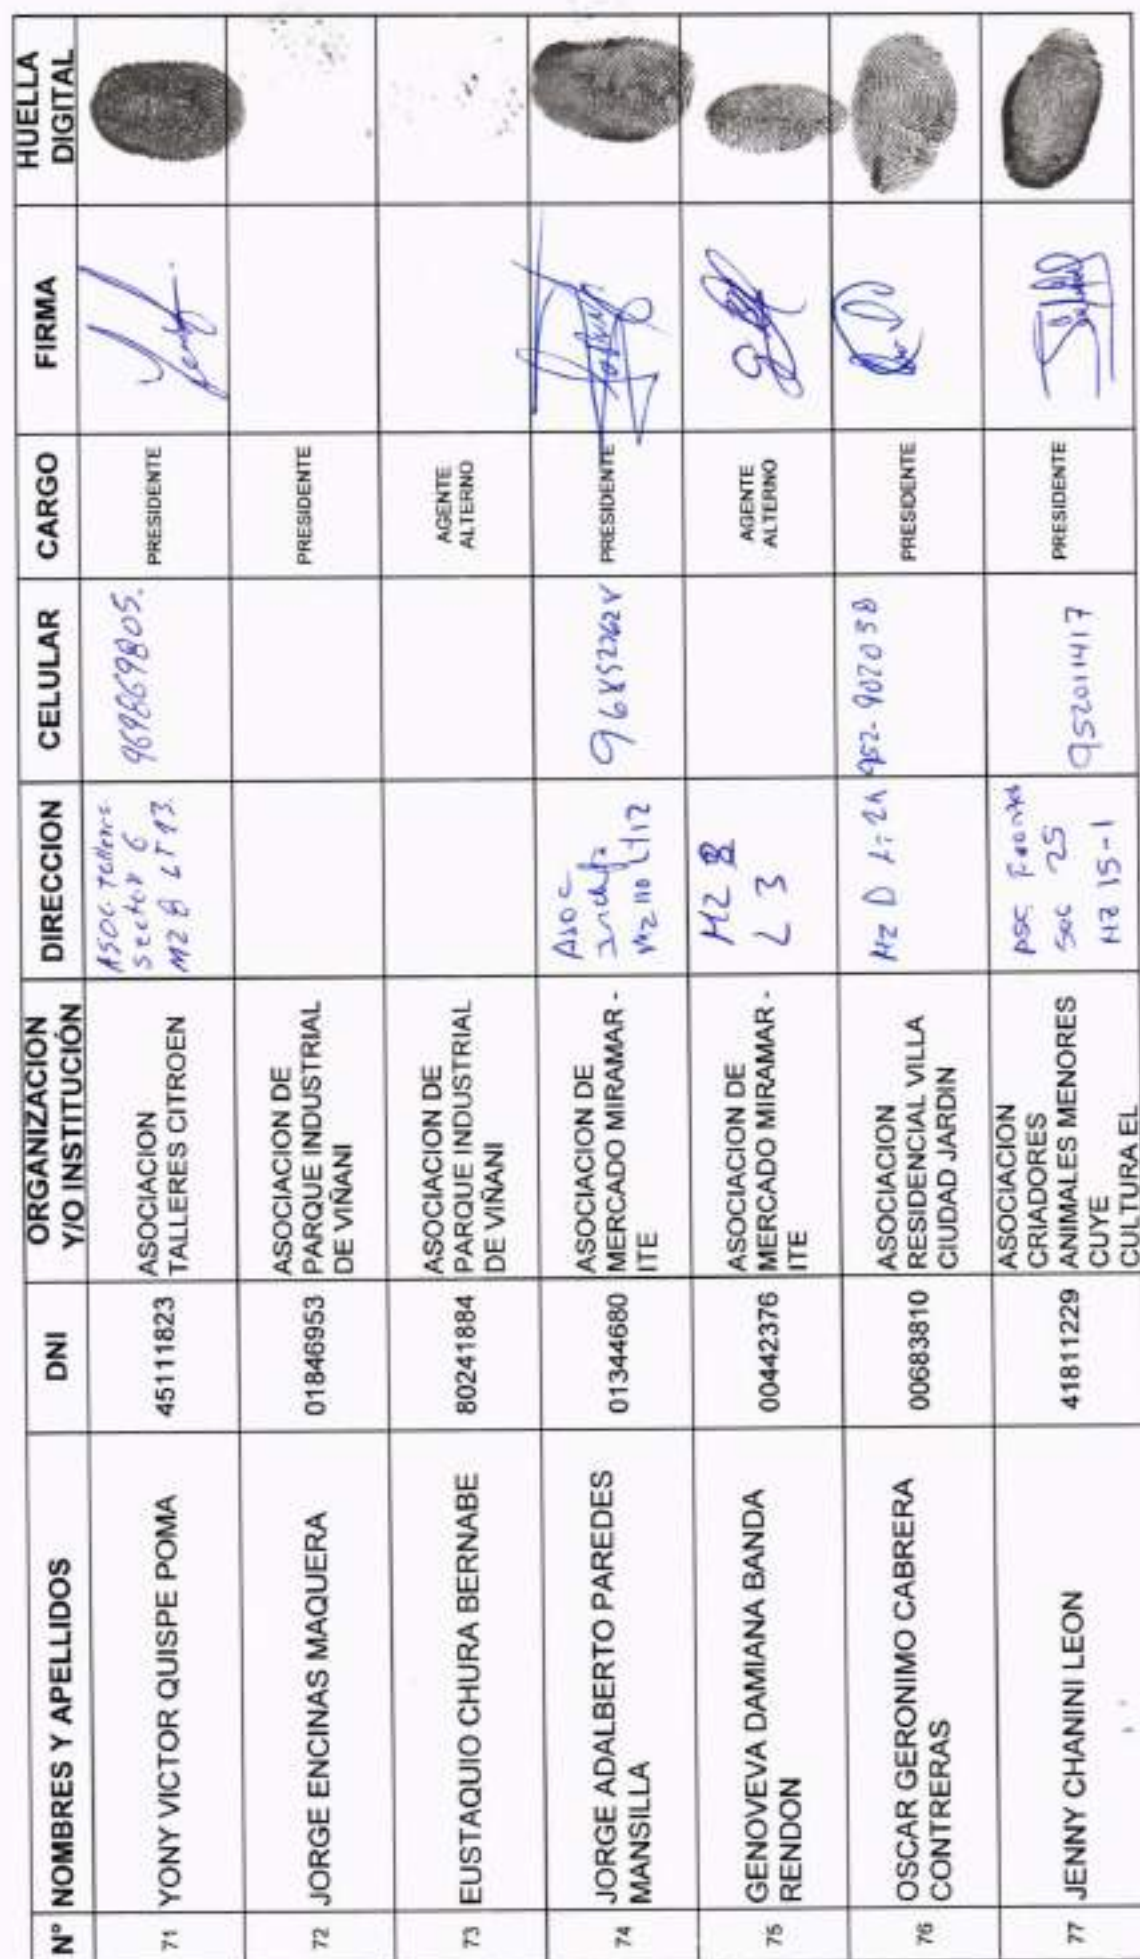 Nº NOMBRES Y APELLIDOS DNI ORGANIZACION Y/O INSTITUCIÓN DIRECCION CELULAR CARGO FIRMA HUELLA DIGITAL
71 YONY VICTOR QUISPE POMA 45111823 ASOCIACION
TALLERES CITROEN
ASOC Talleres
Sector 6
MZ B LT 13
969669805.
PRESIDENTE
72 JORGE ENCINAS MAQUERA 01846953 ASOCIACION DE
PARQUE INDUSTRIAL
DE VIÑANI
PRESIDENTE
73 EUSTAQUIO CHURA BERNABE 80241884 ASOCIACION DE
PARQUE INDUSTRIAL
DE VIÑANI
AGENTE
ALTERNO
74 JORGE ADALBERTO PAREDES
MANSILLA
01344680
ASOCIACION DE
MERCADO MIRAMAR -
ITE
Asoc
Mz 110 Lt 12
PRESIDENTE
75 GENOVEVA DAMIANA BANDA
RENDON
00442376
ASOCIACION DE
MERCADO MIRAMAR -
ITE
MZ B
L 3
AGENTE
ALTERNO
76 OSCAR GERONIMO CABRERA
CONTRERAS
00683810
ASOCIACION
RESIDENCIAL VILLA
CIUDAD JARDIN
Mz D
952-902038
PRESIDENTE
77 JENNY CHANINI LEON 41811229
ASOCIACION
CRIADORES
ANIMALES MENORES
CUYE
CULTURA EL
25
MZ 15-1
952011417
PRESIDENTE